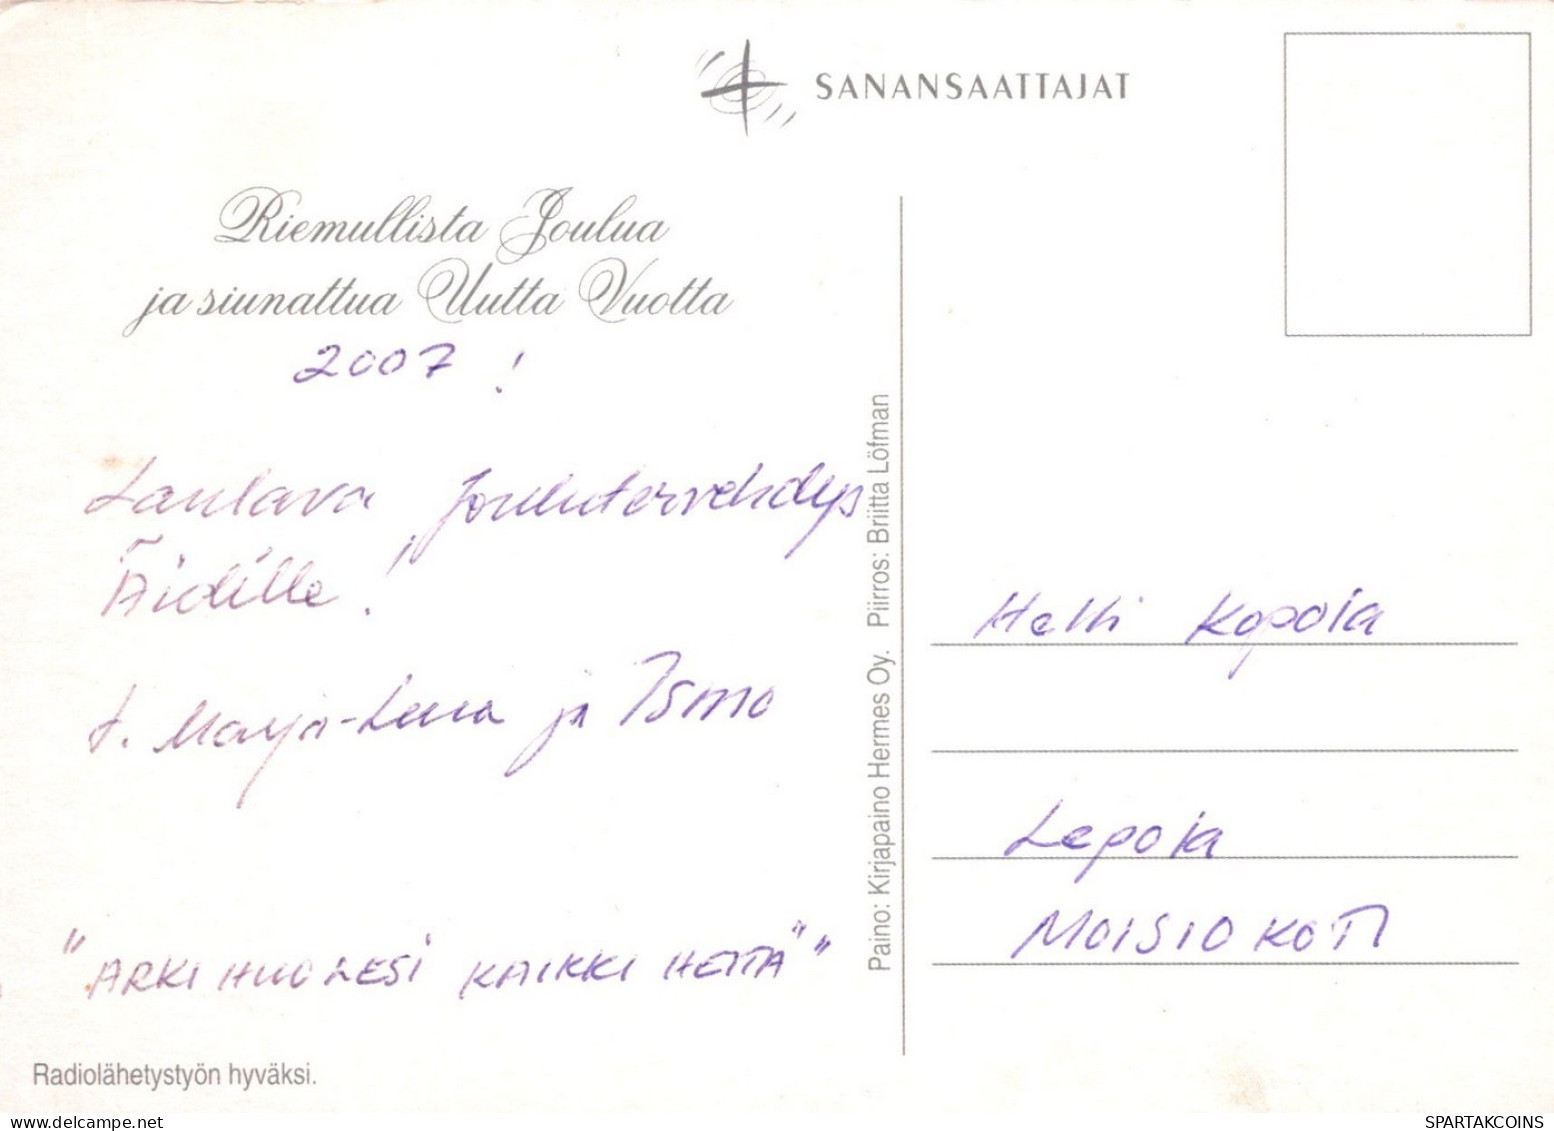 SANANSAATTAJAT
Riemullista Joulua
ja siunattua Uutta Vuotta
2007 !
Laulava Joulutervehdys
Äidille!
t. Marja-Leena ja Ismo
"ARKIHUOLESI KAIKKI HEITÄ""
Radiolähetystyön hyväksi.
Paino: Kirjapaino Hermes Oy. Piirros: Briitta Löfman
Helli Kopola
Lepola
MOISIOKOTI
SPARTAKCOINS